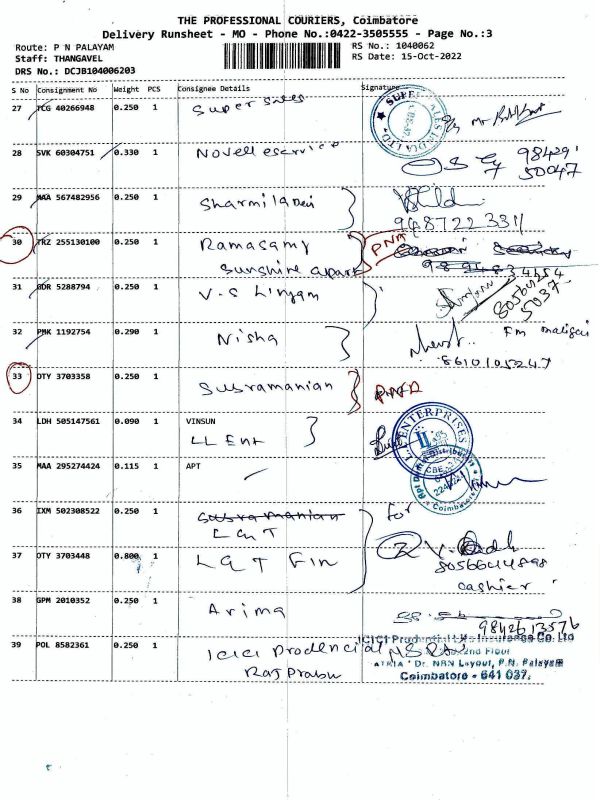 THE PROFESSIONAL COURIERS, Coimbatore
Delivery Runsheet - MO - Phone No.:0422-3505555 - Page No.:3
Route: P N PALAYAM
RS No.: 1040062
Staff: THANGAVEL
RS Date: 15-Oct-2022
DRS No.: DCJB104006203
S No Consignment No Weight PCS Consignee Details Signature
27 TCG 40266948 0.250 1 Super Sales
28 SVK 60304751 0.330 1 Novell eservice
98429 50047
29 MAA 567482956 0.250 1 Sharmila Devi
9487223311
30 TRZ 255130100 0.250 1 Ramasamy PNA
Sunshine apart
31 GDR 5288794 0.250 1 V.S Lingam
32 PMK 1192754 0.290 1 Nisha
8610105247
33 OTY 3703358 0.250 1 Subramanian
34 LDH 505147561 0.090 1 VINSUN
LL Ent
ENTERPRISES
35 MAA 295274424 0.115 1 APT
Coimbatore
36 IXM 502308522 0.250 1 Subramanian for
LGT
37 OTY 3703448 0.800 1 LGT Fin
8056644898
cashier
38 GPM 2010352 0.250 1 Arima
9842613576
39 POL 8582361 0.250 1 ICICI Prudencial
Raj Prabu
ICICI Prudential Life Insurance Co. Ltd
2nd Floor
ATRIA Dr. NRN Layout, P.N. Palayam
Coimbatore - 641 037.